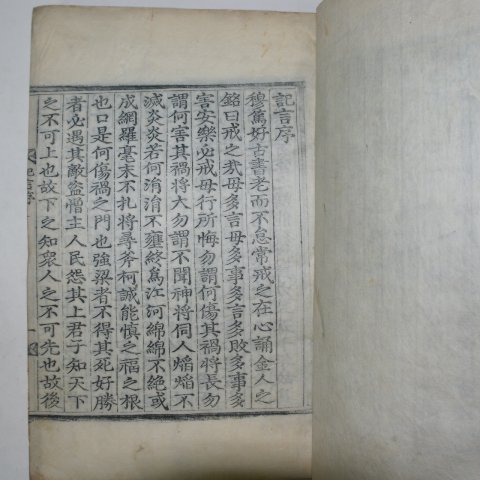 記言序
穆篤好古書老而不怠常戒之在心誦金人之
銘曰戒之哉毋多言毋多事多言多敗多事多
害安樂必戒毋行所悔勿謂何傷其禍將長勿
謂何害其禍將大勿謂不聞神將伺人焰焰不
滅炎炎若何涓涓不壅終爲江河綿綿不絶或
成網羅毫末不扎將尋斧柯誠能愼之福之根
也口是何傷禍之門也強梁者不得其死好勝
者必遇其敵盜憎主人民怨其上君子知天下
之不可上也故下之知衆人之不可先也故後
記言序
一